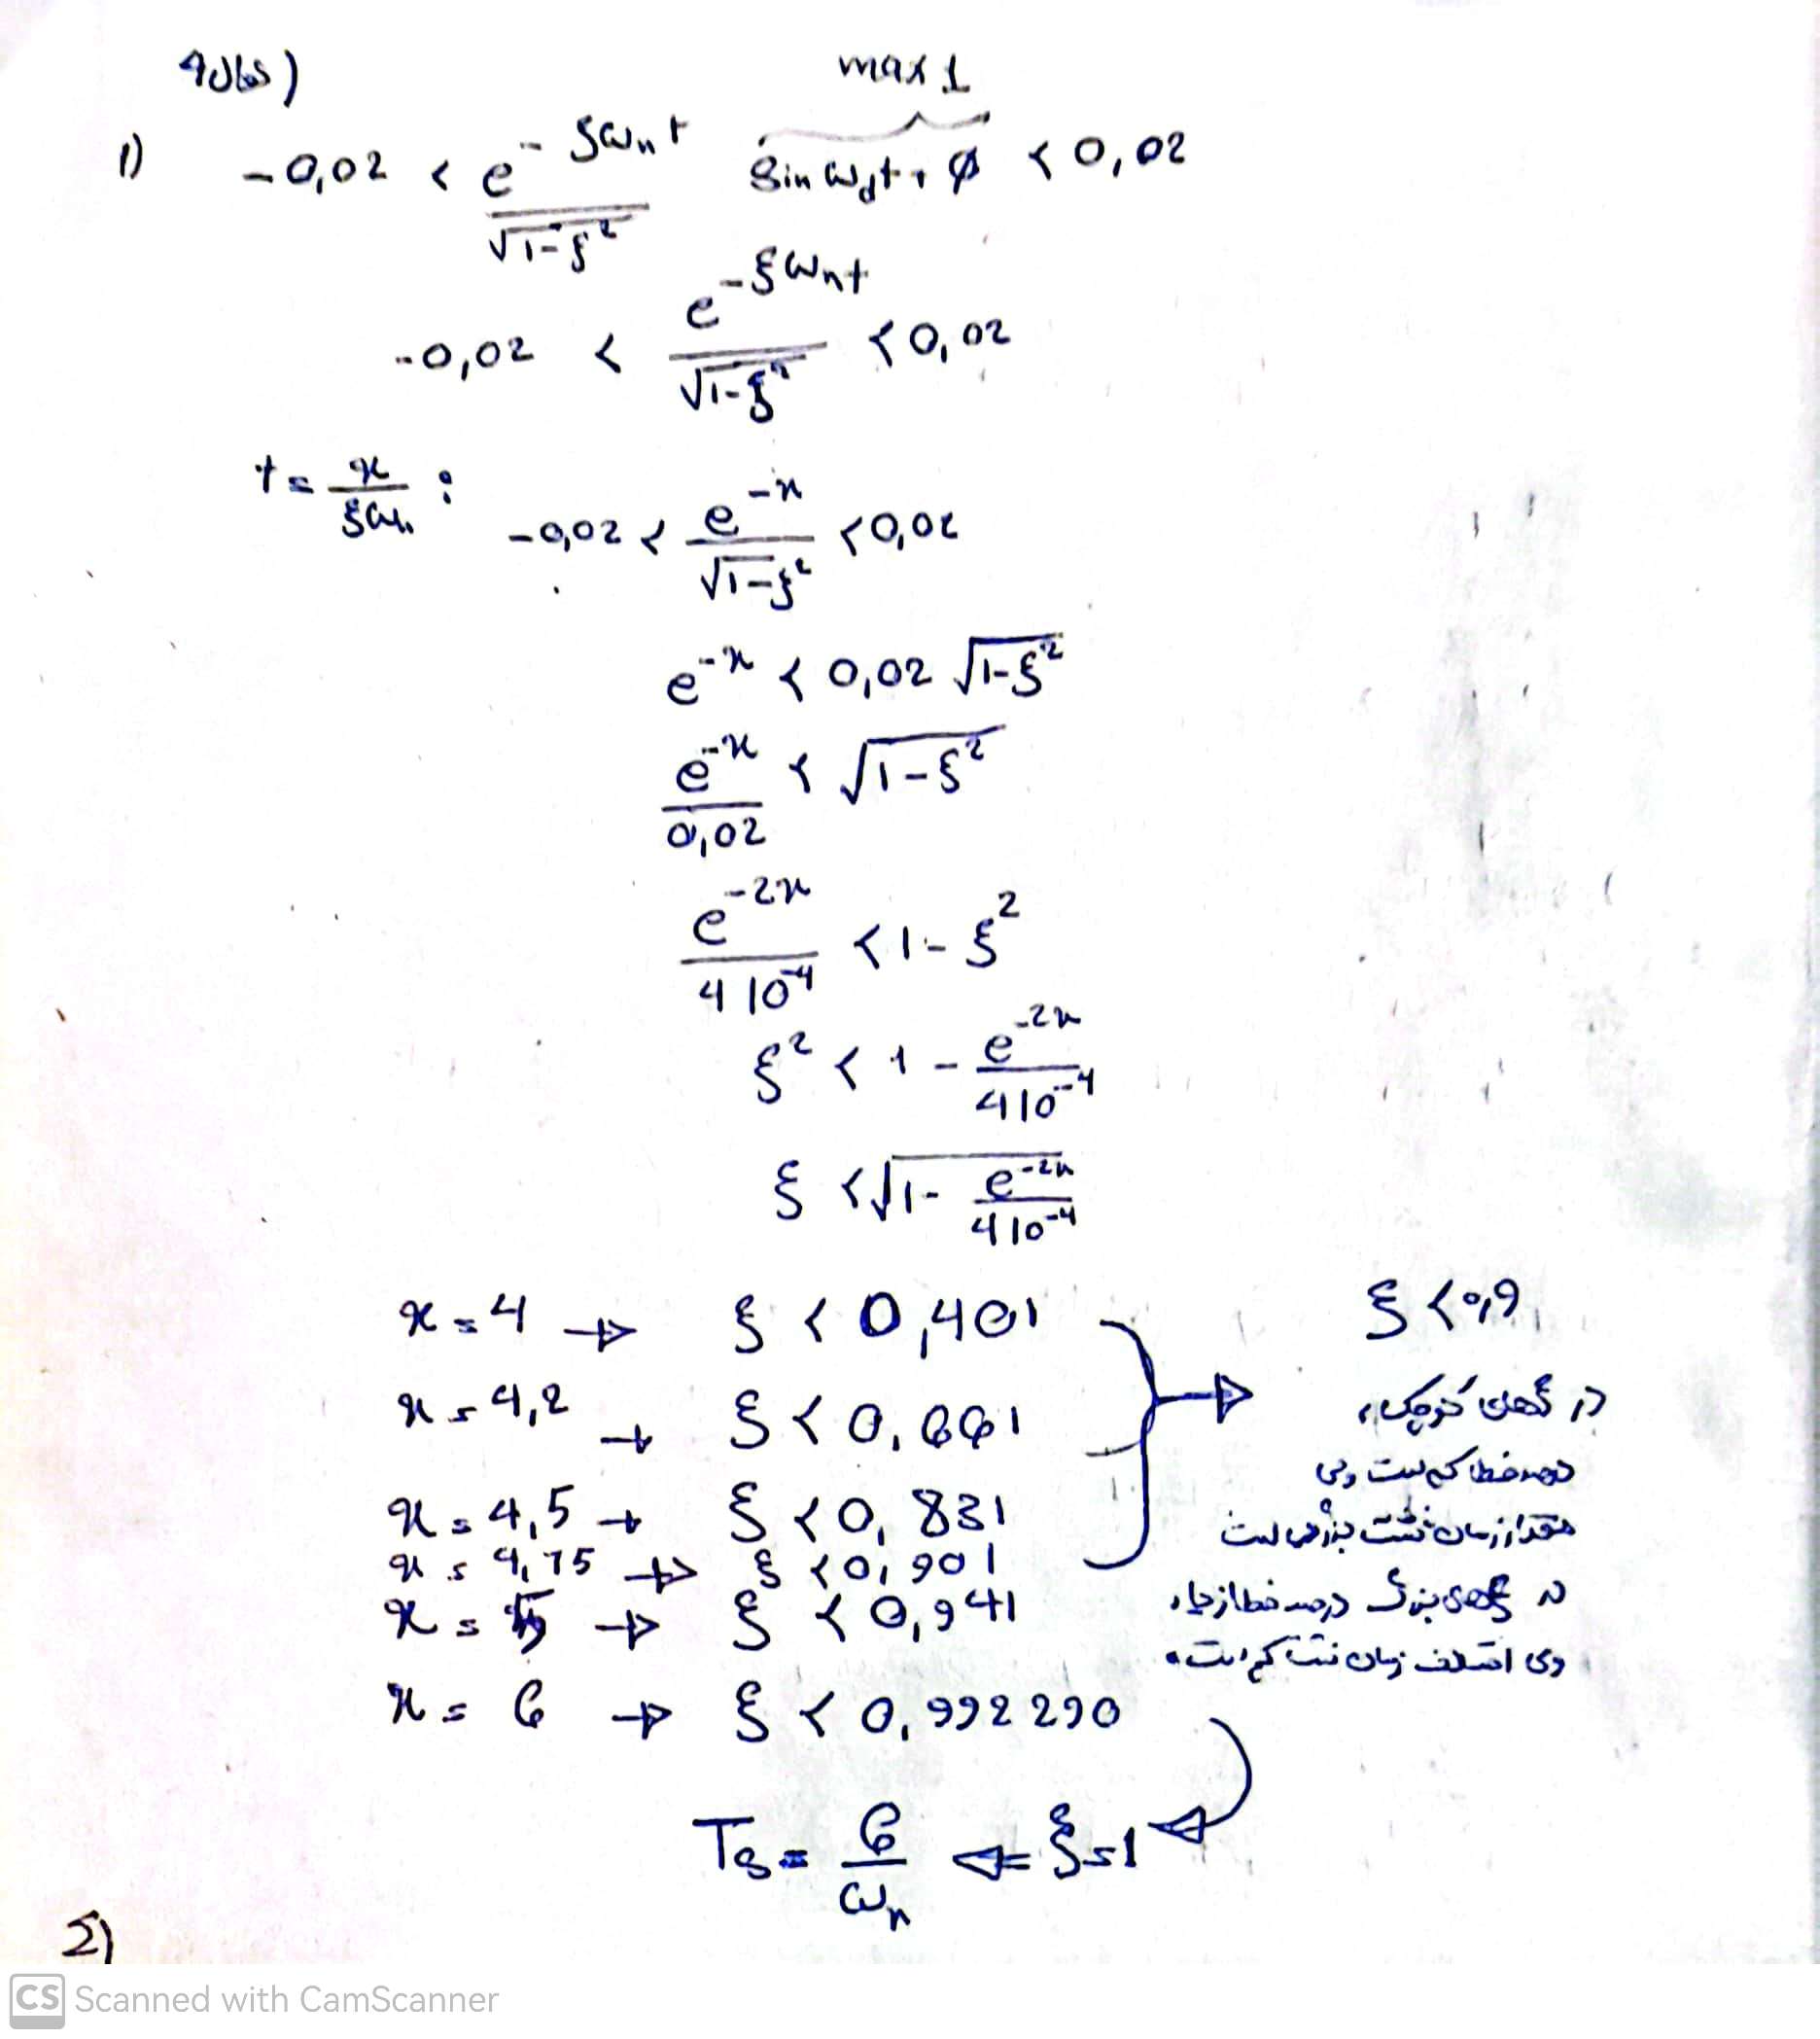 max 1
1) -0,02 < e^-ξωnt / √1-ξ² sin ωdt + φ < 0,02
-0,02 < e^-ξωnt / √1-ξ² < 0,02
t = x / ξωn : -0,02 < e^-x / √1-ξ² < 0,02
e^-x < 0,02 √1-ξ²
e^-x / 0,02 < √1-ξ²
e^-2x / 4 10^-4 < 1-ξ²
ξ² < 1 - e^-2x / 4 10^-4
ξ < √1- e^-2x / 4 10^-4
x = 4 → ξ < 0,401
x = 4,2 → ξ < 0,661
x = 4,5 → ξ < 0,831
x = 4,75 → ξ < 0,901
x = 5 → ξ < 0,941
x = 6 → ξ < 0,992290
ξ < 0,9
در ξ های کوچک،
درصد خطا کم است ولی
مقدار زمان نشست بزرگ است
در ξ های بزرگ درصد خطا زیاد،
ولی اختلاف زمان نشست کم است.
Ts = 6 / ωn ⇐ ξ=1
2)
CS Scanned with CamScanner